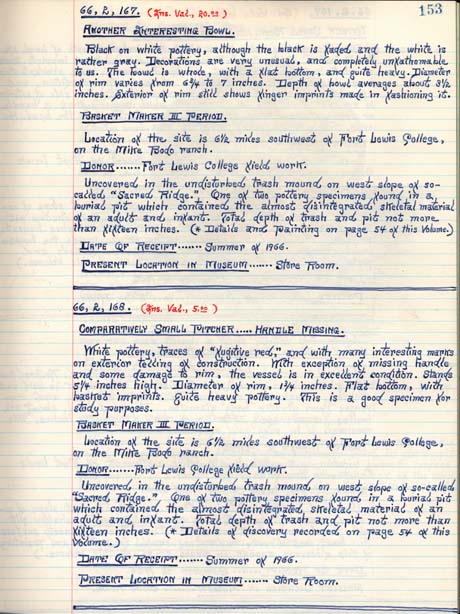 153
66, 2, 167. (Ins. Val., 20.00)
Another Interesting Bowl.
Black on white pottery, although the black is faded and the white is
rather gray. Decorations are very unusual, and completely unfathomable
to us. The bowl is whole, with a flat bottom, and quite heavy. Diameter
of rim varies from 6¾ to 7 inches. Depth of bowl averages about 3½
inches. Exterior of rim still shows finger imprints made in fashioning it.
Basket Maker III Period.
Location of the site is 6½ miles southwest of Fort Lewis College,
on the Mike Bodo ranch.
Donor.......Fort Lewis College field work.
Uncovered in the undisturbed trash mound on west slope of so-
called "Sacred Ridge." One of two pottery specimens found in a
burial pit which contained the almost disintegrated skeletal material
of an adult and infant. Total depth of trash and pit not more
than fifteen inches. (* Details and painting on page 54 of this Volume.)
Date Of Receipt....... Summer of 1966.
Present Location in Museum....... Store Room.
66, 2, 168. (Ins. Val., 5.00)
Comparatively Small Pitcher..... Handle Missing.
White pottery, traces of "fugitive red," and with many interesting marks
on exterior telling of construction. With exception of missing handle
and some damage to rim, the vessel is in excellent condition. Stands
5¼ inches high. Diameter of rim, 1¾ inches. Flat bottom, with
basket imprints. Quite heavy pottery. This is a good specimen for
study purposes.
Basket Maker III Period.
Location of the site is 6½ miles southwest of Fort Lewis College,
on the Mike Bodo ranch.
Donor.......Fort Lewis College field work.
Uncovered in the undisturbed trash mound on west slope of so-called
"Sacred Ridge." One of two pottery specimens found in a burial pit
which contained the almost disintegrated skeletal material of an
adult and infant. Total depth of trash and pit not more than
fifteen inches. (* Details of discovery recorded on page 54 of this
Volume.)
Date Of Receipt....... Summer of 1966.
Present Location in Museum....... Store Room.